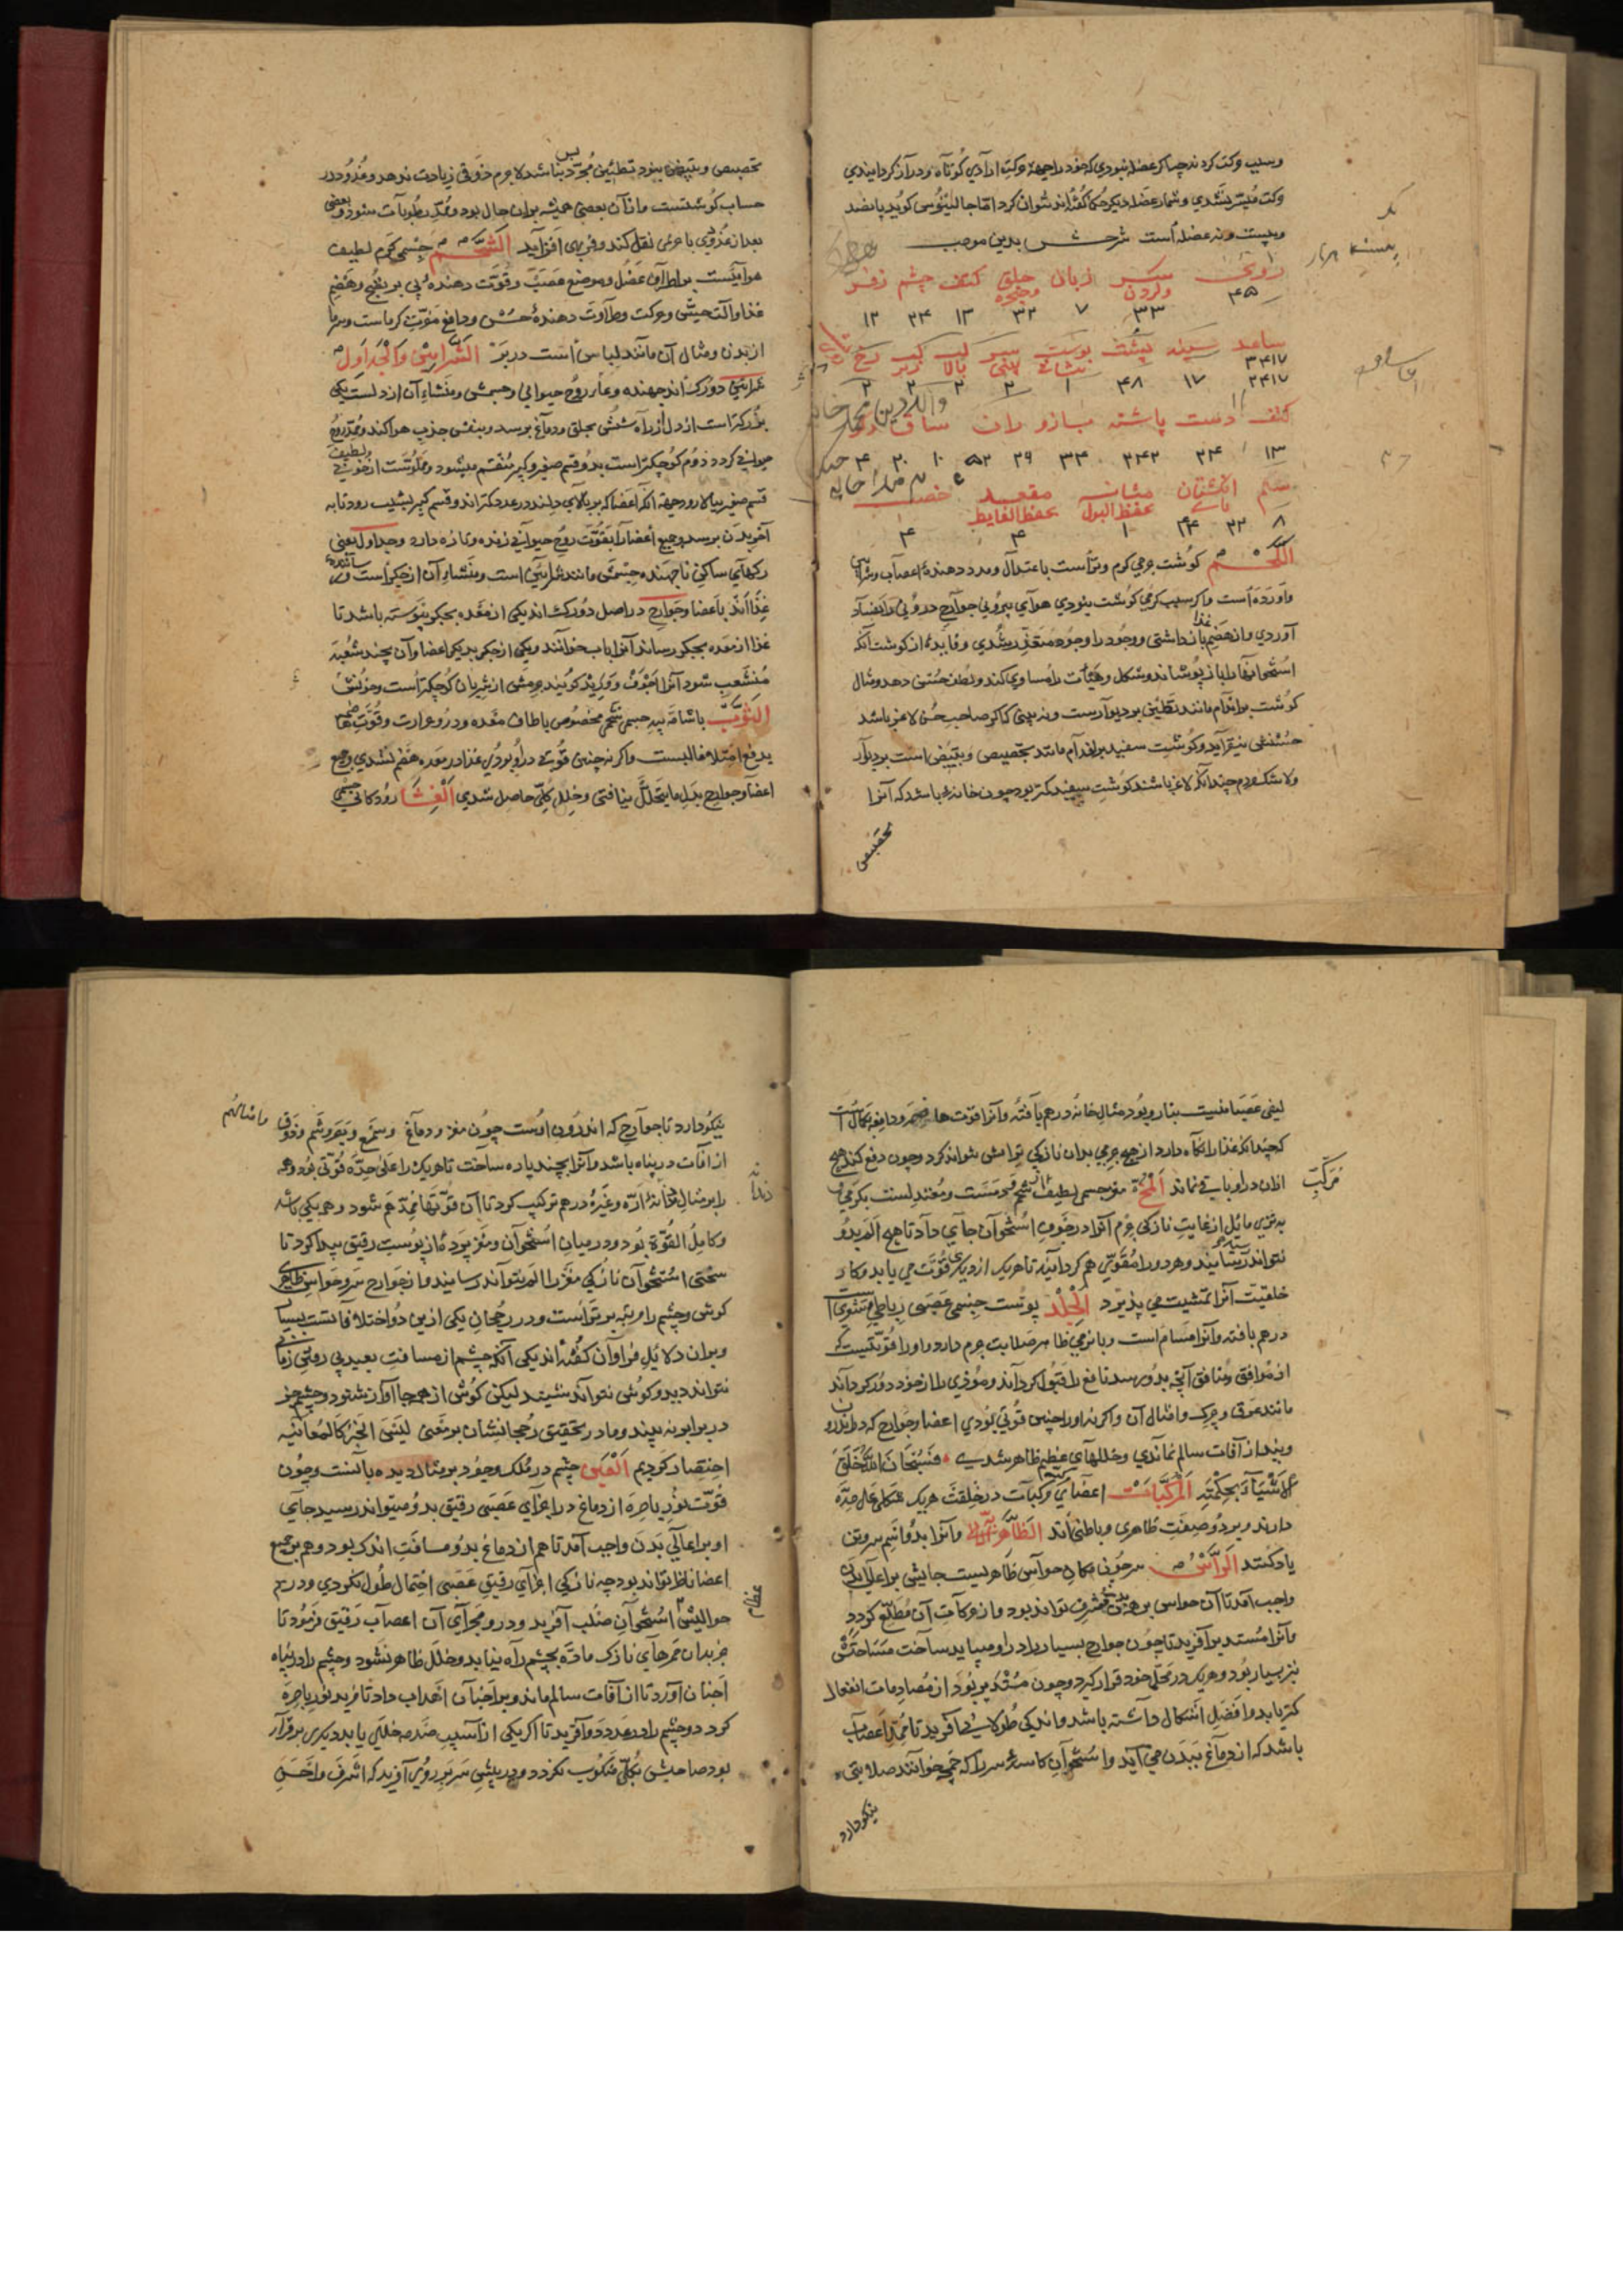 وسبب حرکت کردند چه اگر عضله نبودی که خود را جهة حرکت ارادی کوتاه و دراز گردانیدی
حرکت میسر نشدی و شمار عضله دیگر حکما گفته‌اند نتوان کرد اما جالینوس گوید پانصد
وبیست ونه عضله است شرحش بدین موجب
روی سر زبان حلق کتف چشم زفر
وگردن وحنجره
۴۵ ۳۳ ۷ ۳۲ ۱۳ ۲۴ ۱۳
ساعد سینه پشت پوست سر لب لب رخ
بینی بالا زیر
۳۴۱۷ ۱۷ ۴۸ ۱ ۲ ۲ ۲ ۲
کتف دست پاشنه بازو ران ساق
۱۳ ۲۴ ۲۴۲ ۳۴ ۳۹ ۵۲ ۱۰ ۲۰ ۴
انگشتان مثانه مقعد خصیه
پای بحفظ البول بحفظ الغایط
۸ ۲۲ ۲۴ ۱ ۴ ۴
اللحم گوشت جرمی گرم وتر است باعتدال ومدد دهندهٔ اعصاب
واورده است واگر سبب گرمی گوشت نبودی هوای بیرونی جوارح درونی را
آوردی و از هضم غذا بازداشتی و وجود را وجود متعذر شدی و فایدهٔ از گوشت آنکه
استخوانها را باز پوشاند و شکل وهیآت را مساوی کند و لطف حسنی دهد ومثال
گوشت بر اندام مانند تطیین بر دیوارست ونه بینی که اگر صاحب حسن لاغر باشد
حسنش نیفزاید و گوشت سفید بر اندام مانند تجصیص وتبییض است بر دیوار
ولاشک مردم چندانکه لاغر باشند گوشت سفید کمتر بود چون خانه باشد که آنرا
تجصیص
تجصیص وتبییض نبود بتطیین مجرد بس نباشد لاجرم ذوقی زیادت ندهد وغدود در
حساب گوشتست و از آن بعضی همیشه بر آن حال بود وممد رطوبات شود و بعضی
بعد از غدودی با عرض نقل کند و فربهی افزاید الشحم جسمی گرم لطیف
هواییست بر اطراف عضل وموضع عصب وقوت دهندهٔ پی بر نضج وهضم
غذا وآلت حسی وحرکت وطراوت دهندهٔ حسن ودافع مضرت گرماست وسرما
از بدن ومثال آن مانند لباس است در بر الشرایین والجداول
شرایین دو رگ اند جهنده وممر روح حیوانی وجسمش ومنشاء آن از دلست یکی
بزرگتر است از دل از راه شش بحلق ودماغ برسد وبنفس جذب هوا کند وممد روح
حیوانی گردد دوم کوچکتر است بدو قسم صغیر وکبیر منقسم میشود ومملوست از خونی لطیف
قسم صغیر ببالا رود جهة آنکه اعضا که بر بالای دلند در عدد کمترند وقسم کبیر بشیب رود تا به
آخر بدن برسد وجمیع اعضا را بقوت روح حیوانی زنده وتازه دارد وجداول یعنی
رگهای ساکن ناجهنده جسمش مانند شرایین است ومنشاء آن از جگر است ورسانندهٔ
غذااند باعضا وجوارح در اصل دو رگ اند یکی از معده بجگر پیوسته باشد تا
غذا از معده بجگر رساند آنرا باب خوانند ویکی از جگر بدیگر اعضا وآن بچند شعبه
منشعب شود آنرا اجوف و ورید گویند جرمش از شریان کوچکتر است وخونش
الثرب باشامه پیه جسمی شحمی مخصوص باطاف معده ودر و حرارت وقوت
بدفع امتلا غالبست واگر نه چنین قوت در او بودی غذا در معده هضم نشدی وجمیع
اعضا وجوارح بدل مایتحلل نیافتی وخلل کلی حاصل شدی الغشا رودگانی جسمی
لیفی عصبانیست بتار وپود مثال خانه درهم بافته وآنرا قوت هاضمه ودافعه بکمال است
که چندانکه غذا را نگاه دارد از هیچ جرمی بدان نازکی تراوش نتواند کرد وچون دفع کند هیچ
اذان در او باقی نماند المخ مغز جسمی لطیف شحم ومعتدلست بگرمی
به تری مایل از غایت نازکی جرم آنرا در جوف استخوان جای داد تا هیچ الم بدو
نتواند رسانید وهر دو را مقوی هم گردانید تا هر یک از دیگری قوت می یابد وکار
خلقیت آنرا تمشیت می پذیرد الجلد پوست جسمی عصبی رباطی
درهم بافته وآنرا مسام است وبا نرمی ظاهر صلابت جرم دارد واورا قوتیست که
از موافق ومنافق آنچه بدو رسد نافع را قبول گرداند وموذی را از خود دور گرداند
مانند عرق وچرک وامثال آن واگر نه اورا چنین قوتی بودی اعضا وجوارح که در اندرو
ویند از آفات سالم نماندی وخللهای عظیم ظاهر شدی فسبحان الله خلق
الاشیآء بحکمته المرکبات اعضای مرکبات در خلقت هر یک شکلی علی حده
دارند وبر دو صفت ظاهری وباطنی اند الظاهرات وآنرا بدو اسم بیرونی
یاد کنند الراس سر چون مکان حواس ظاهریست جایش بر اعالی بدن
واجب آمد تا آن حواس بر همه بدن مشرف تواند بود و از حرکات آن مطلع گردد
وآنرا مستدیر آفرید تا چون جوارح بسیار را در او میباید ساخت مساحتش
نیز بسیار بود وهر یک در محل خود قرار گیرد وچون مستدیر بود از مصادمات انفعال
کمتر یابد و افضل اشکال داشته باشد واندکی طولانیش آفرید تا ممد اعصاب
باشد که از دماغ ببدن می آید واستخوان کاسهٔ سر را که جمجمه خوانند صلابتی
نیکو دارد
مرکب
نیکو دارد تا جوارح که اندرون اوست چون مغز ودماغ وسمع وبصر وشم وذوق
وامثالهم
از آفات در پناه باشد وآنرا بچند پاره ساخت تا هر یک را علی حده قوتی بود وهمه
را بر مثال دندانهٔ اره وغیره درهم ترکیب کرد تا آن قوتها ممد هم شود وهمه یکی باشد
دندانه
وکامل القوة بود ودر میان استخوان ومغز پردهٔ از پوست رقیق پیدا کرد تا
سختی استخوان نازکی مغز را الم نتواند رسانید و از جوارح سر وحواس ظاهری
گوش وچشم را مرتبه برتر است ودر رجحان یکی ازین دو اختلافاتست بسیار
وبر آن دلایل فراوان گفته اند یکی آنکه چشم از مسافت بعید بی رویتی زمانی
نتواند دید وگوش نتواند شنید لیکن گوش از همه جا آواز شنود وچشم جز
در برابر نه بیند وما در تحقیق رجحانشان بر معنی لیس الخبر کالمعاینه
اختصار کردیم العین چشم در ملک وجود بر مثال دیده بانست وچون
قوت نور باصره از دماغ در اجزای عصبی رقیق بدو میتواند رسید جای
او بر اعالی بدن واجب آمد تا هم از دماغ بدو مسافت اندک بود وهم بر جمیع
اعضا ناظر تواند بود چه نازکی اجزای رقیق عصبی احتمال طول نکردی ودر هم
حوالیش استخوان صلب آفرید ودر ومجرای آن اعصاب رقیق فرمود تا
عظام
جز بدان ممرهای نازک ماده بچشم راه نیابد وخلل ظاهر نشود وچشم را در پناه
اجفان آورد تا از آفات سالم ماند وبر اجفان اهداب داد تا مزید نور باصره
گردد دو چشم را در عدد دو آفرید تا اگر یکی از آسیب صدمه خللی یابد دیگری برقرار
بود صاحبش بکلی منکوب نگردد ودر پیش سر بر روی آفرید که اشرف واحسن